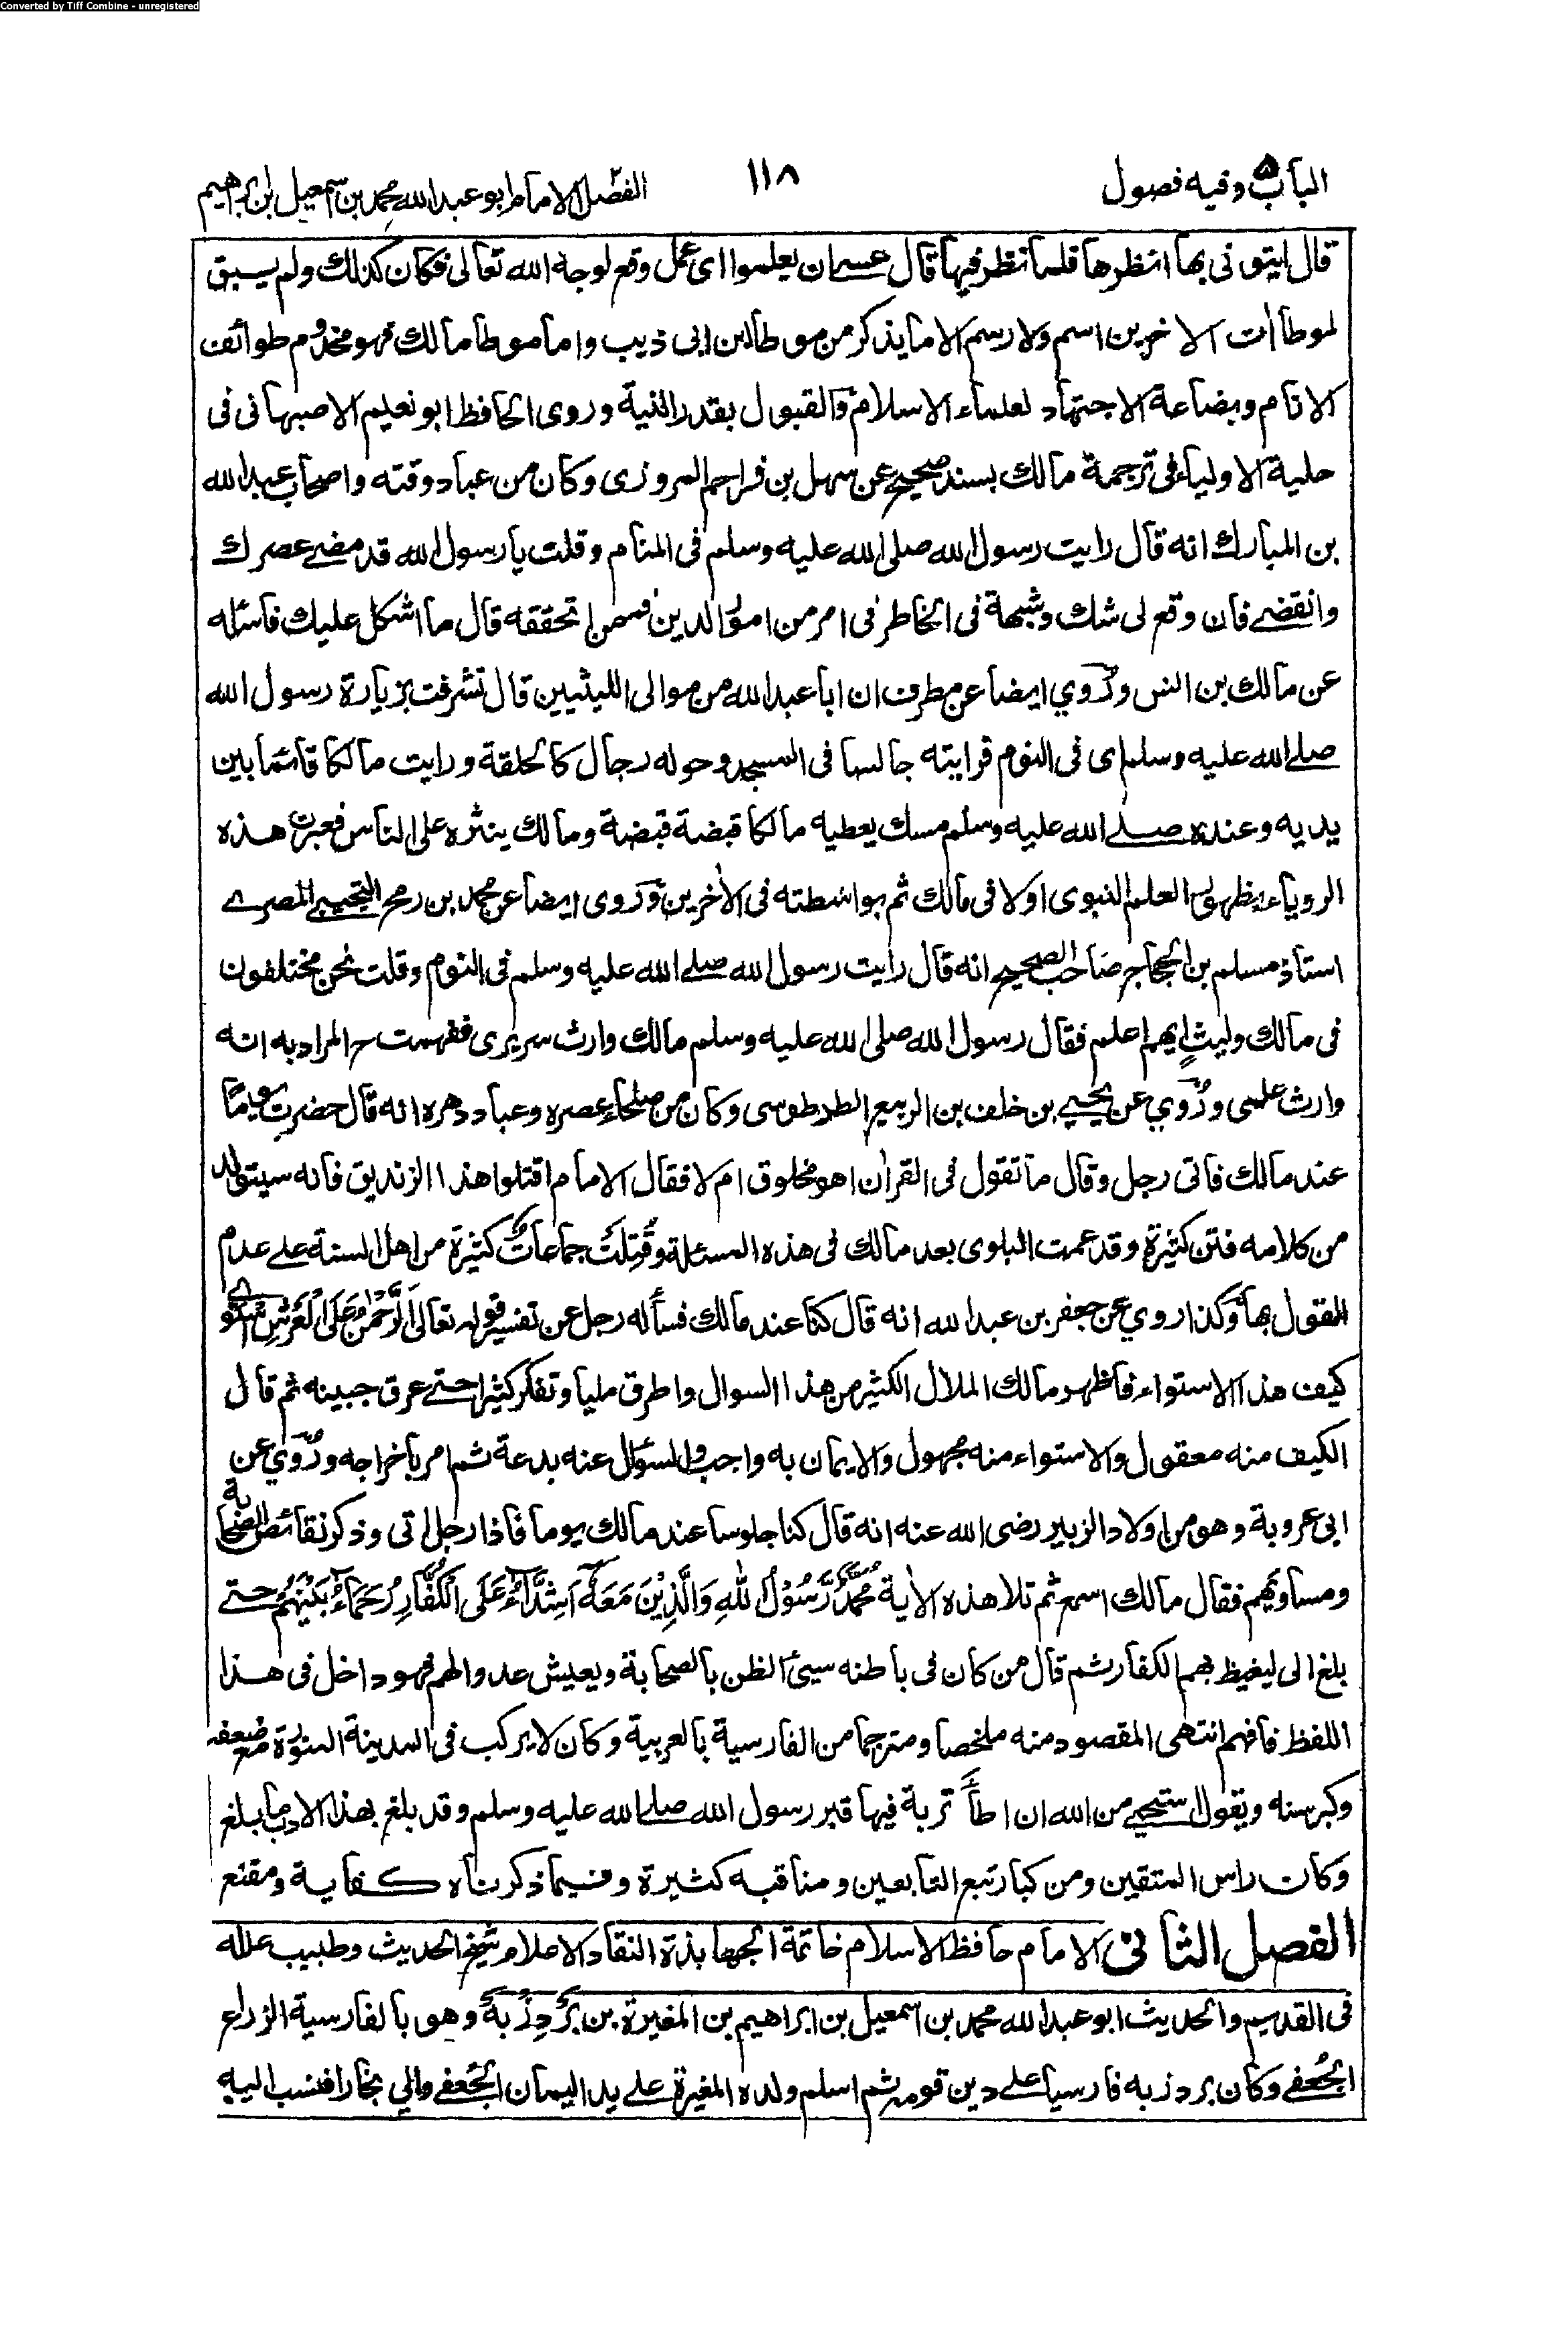 Converted by Tiff Combine - unregistered
الباب ٥ وفيه فصول
١١٨
الفصل الامام ابو عبد الله محمد بن اسمعيل بن ابراهيم
قال ايتونى بها انظرها فلما نظر فيها قال عسى ان يعلموا اى عمل وقع لوجه الله تعالى فكان كذلك ولم يسبق
لموطآت الاخرين اسم ولا رسم الا ما يذكر من موطا ابن ابى ذيب واما موطا مالك فهو مخدوم طوائف
الانام وبضاعة الاجتهاد لعلماء الاسلام والقبول بقدر النية وروى الحافظ ابو نعيم الاصبهانى فى
حلية الاولياء فى ترجمة مالك بسند صحيح عن سهل بن مزاحم المروزى وكان من عباد وقته واصحاب عبد الله
بن المبارك انه قال رايت رسول الله صلى الله عليه وسلم فى المنام وقلت يا رسول الله قد مضى عصرك
وانقضى فان وقع لى شك وشبهة فى الخاطر فى امر من امور الدين فممن اتحققه قال ما اشكل عليك فاسئله
عن مالك بن انس ورُوي ايضا عن مطرف ان ابا عبد الله من موالى الليثيين قال تشرفت بزيارة رسول الله
صلى الله عليه وسلم اى فى النوم فرايته جالسا فى المسجد وحوله رجال كالحلقة ورايت مالكا قائما بين
يديه وعنده صلى الله عليه وسلم مسك يعطيه مالكا قبضة قبضة ومالك ينثره على الناس فعبرت هذه
الروياء بظهور العلم النبوى اولا فى مالك ثم بواسطته فى الاخرين ورُوى ايضا عن محمد بن رمح التجيبى المصرى
استاذ مسلم بن الحجاج صاحب الصحيح انه قال رايت رسول الله صلى الله عليه وسلم فى النوم وقلت نحن مختلفون
فى مالك وليثٍ ايهم اعلم فقال رسول الله صلى الله عليه وسلم مالك وارث سريرى ففهمت ح المراد به انه
وارث علمى ورُوي عن يحيى بن خلف بن الربيع الطرطوسى وكان من صلحاء عصره وعباد دهره انه قال حضرت يومًا
عند مالك فاتى رجل وقال ما تقول فى القرآن اهو مخلوق ام لا فقال الامام اقتلوا هذا الزنديق فانه سيتولد
من كلامه فتن كثيرة وقد عمت البلوى بعد مالك فى هذه المسئلة وقُتِلَتْ جماعاتٌ كثيرة من اهل السنة على عدم
القول بها وكذا روي عن جعفر بن عبد الله انه قال كنا عند مالك فسأله رجل عن تفسير قوله تعالى اَلرَّحْمٰنُ عَلَى الْعَرْشِ اسْتَوٰى
كيف هذا الاستواء فاظهر مالك الملال الكثير من هذا السوال واطرق مليا وتفكر كثيرا حتى عرق جبينه ثم قال
الكيف منه معقول والاستواء منه مجهول والايمان به واجب والسؤال عنه بدعة ثم امر باخراجه ورُوي عن
ابى عروبة وهو من اولاد الزبير رضى الله عنه انه قال كنا جلوسا عند مالك يوما فاذا رجل اتى وذكر نقائص الصحابة
ومساويهم فقال مالك اسمع ثم تلا هذه الآية مُحَمَّدٌ رَّسُوْلُ اللّٰهِ وَالَّذِيْنَ مَعَهٗٓ اَشِدَّآءُ عَلَى الْكُفَّارِ رُحَمَآءُ بَيْنَهُمْ حتى
بلغ الى ليغيظ بهم الكفار ثم قال من كان فى باطنه سيئ الظن بالصحابة ويعيش عدوا لهم فهو داخل فى هذا
اللفظ فافهم انتهى المقصود منه ملخصا ومترجما من الفارسية بالعربية وكان لا يركب فى المدينة المنورة مع ضعفه
وكبر سنه ويقول استحيى من الله ان اطأَ تربة فيها قبر رسول الله صلى الله عليه وسلم وقد بلغ بهذا الادب ما بلغ
وكان راس المتقين ومن كبار تبع التابعين ومناقبه كثيرة وفيما ذكرناه كفاية ومقنع
الفصل الثانى الامام حافظ الاسلام خاتمة الجهابذة النقاد الاعلام شيخ الحديث وطبيب علله
فى القديم والحديث ابو عبد الله محمد بن اسمعيل بن ابراهيم بن المغيرة بن بَرْدِزْبَةَ وهو بالفارسية الزراع
الجُعفى وكان بردزبه فارسيا على دين قومه ثم اسلم ولده المغيرة على يد اليمان الجُعفى والي بخارا فنسب اليه